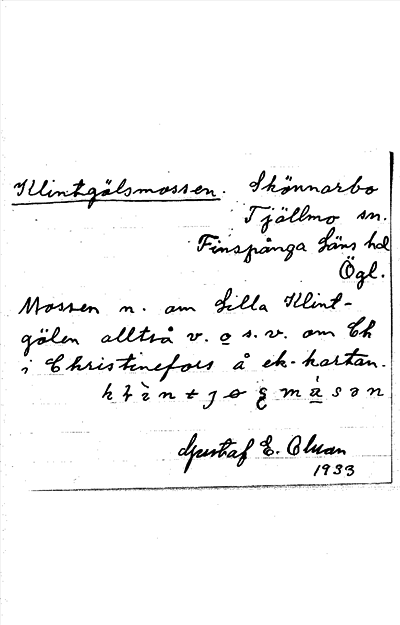 Klintgölsmossen. Skönnarbo
Tjällmo sn.
Finspånga Läns hd
Ögl.
Mossen n. om Lilla Klint-
gölen alltså v. o s. v. om Ch
i Christinefors å ek-kartan.
Gustaf E. Olsson
1933